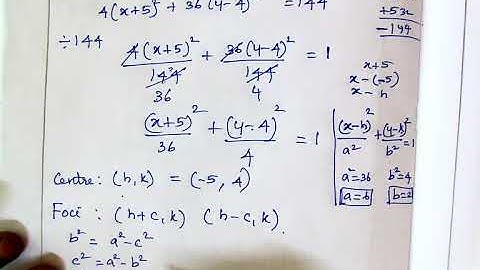 4(x+5)² + 36(y-4)² = 144
+532
-144
÷144 4(x+5)²/144 + 36(y-4)²/144 = 1
36 4
x+5
x-(-5)
x-h
(x+5)²/36 + (y-4)²/4 = 1
(x-h)²/a² + (y-k)²/b² = 1
a²=36 b²=4
a=6 b=2
Centre: (h,k) = (-5, 4)
Foci: (h+c,k) (h-c,k)
b² = a²-c²
c² = a²-b²